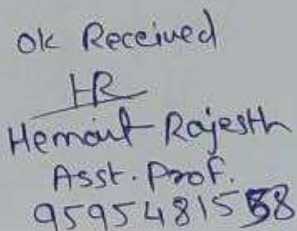 Ok Received
HR
Hemant Rajesth
Asst. Prof.
9595481558